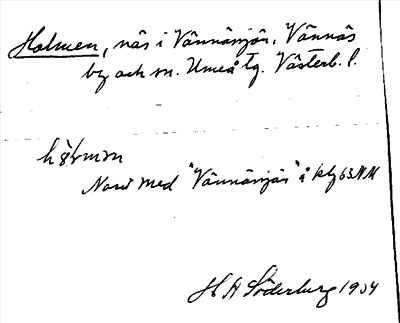 Holmen, näs i Vännäsjön, Vännäs
by och sn. Umeå tg. Västerb. l.
Nord med "Vännäsjön" å 63 NM
H A Söderburg 1934